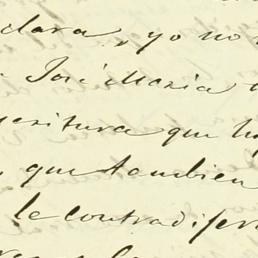 clara, yo no
José Maria
critura que
que tambien
le contradije